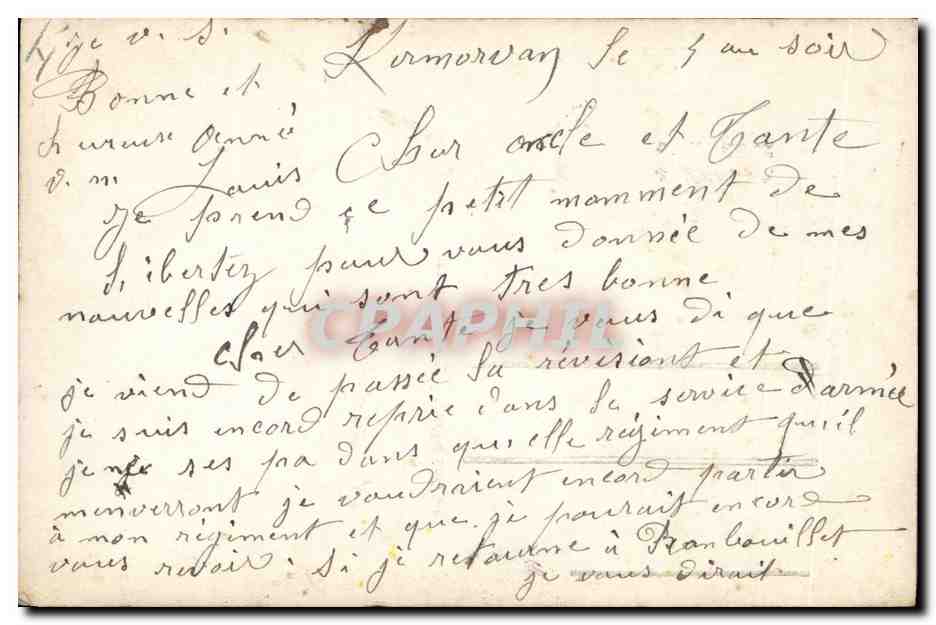 je v. s.
Bonne et
heureuse Année
v. m. Louis
Kermorvan le 5 au soir
Cher oncle et Tante
Je prend ce petit momment de
Libertéz pour vous donnée de mes
nouvelles qui sont tres bonne
Cher Tante je vous di que
je viend de passée la révisiont et
je suis encord reprie dans le service d'armée
je ne ses pa dans qu'elle régiment qu'il
m'enverront je voudraient encord partir
à mon régiment et que je pourait encord
vous revoir. Si je retourne à Ranbouillet
je vous dirait.
CPAPHIL